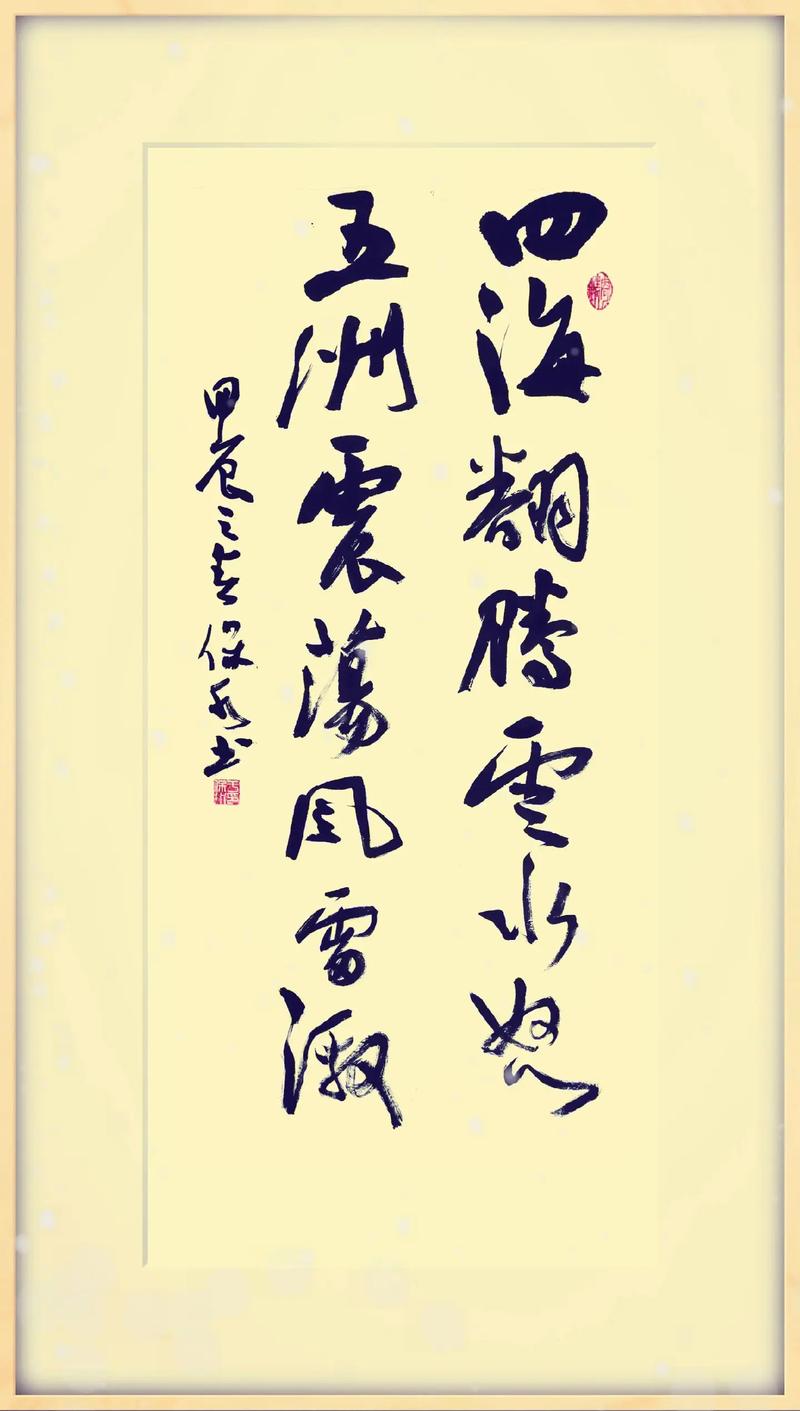 四海翻腾雲水怒
五洲震荡風雷激
甲辰之春保永书